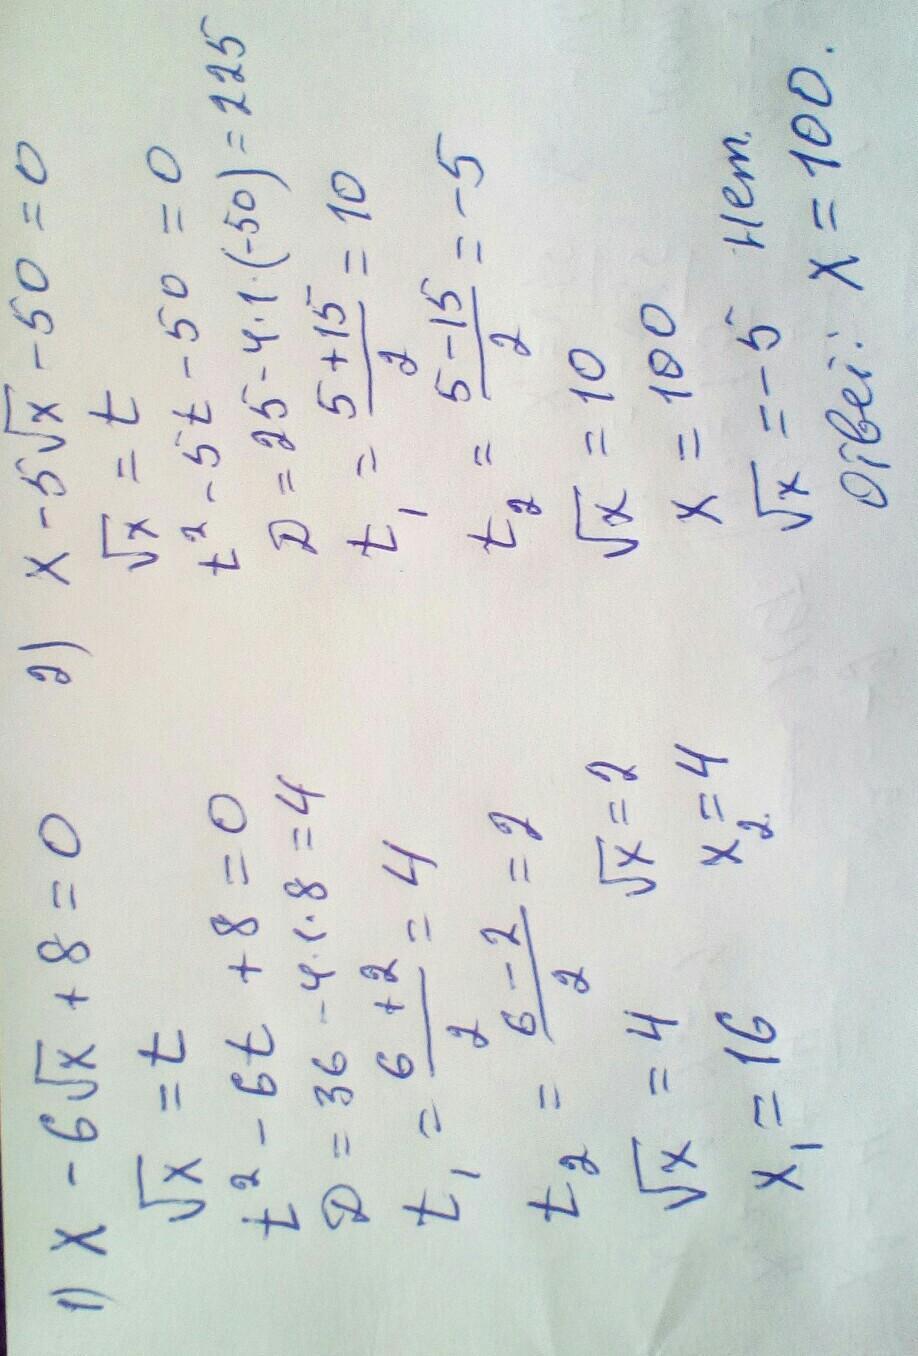 1) x - 6√x + 8 = 0
√x = t
t² - 6t + 8 = 0
D = 36 - 4·1·8 = 4
t₁ = (6+2)/2 = 4
t₂ = (6-2)/2 = 2
√x = 4 √x = 2
x₁ = 16 x₂ = 4
2) x - 5√x - 50 = 0
√x = t
t² - 5t - 50 = 0
D = 25 - 4·1·(-50) = 225
t₁ = (5+15)/2 = 10
t₂ = (5-15)/2 = -5
√x = 10
x = 100
√x = -5 нет
Ответ: x = 100.